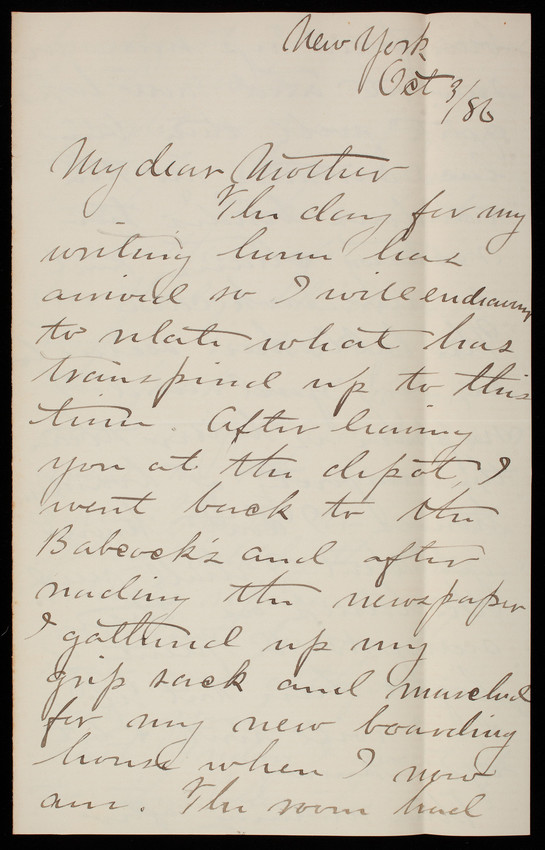 New York
Oct 3/86
My dear Mother
The day for my
writing home has
arrived so I will endeavor
to relate what has
transpired up to this
time. After leaving
you at the depot, I
went back to the
Babcock's and after
reading the newspaper
I gathered up my
grip sack and marched
for my new boarding
house where I now
am. The room had